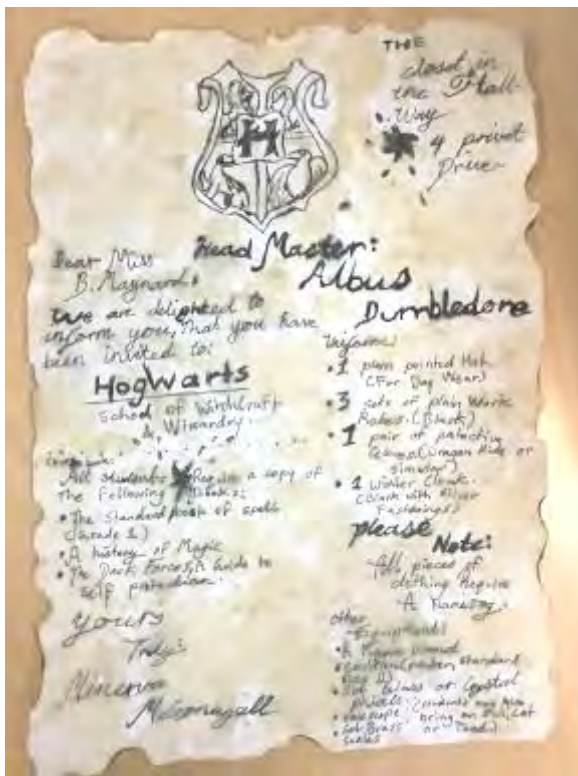 THE
closet in
the Hall-
way
4 privet
Drive
H
Head Master:
Albus
Dumbledore
Dear Miss
B. Maynard,
We are delighted to
inform you, that you have
been invited to:
Hogwarts
School of Witchcraft
& Wizardry.
All students Require a copy of
the following Books:
• The Standard book of spells
(Grade 1)
• A history of Magic
• The Dark Forces, A Guide to
self protection.
yours
Truly:
Minerva
McGonagall
Uniform:
• 1 plain pointed Hat
(For Day Wear)
• 3 sets of plain Work
Robes. (Black)
• 1 pair of protective
(Dragon Hide or
similar)
• 1 Winter Cloak.
(Black with Silver
Fastenings)
please
Note:
All pieces of
clothing Require
A
other
Equipment:
• A Magic wand
standard
• Set Glass or Crystal
• telescope
• set Brass
scales